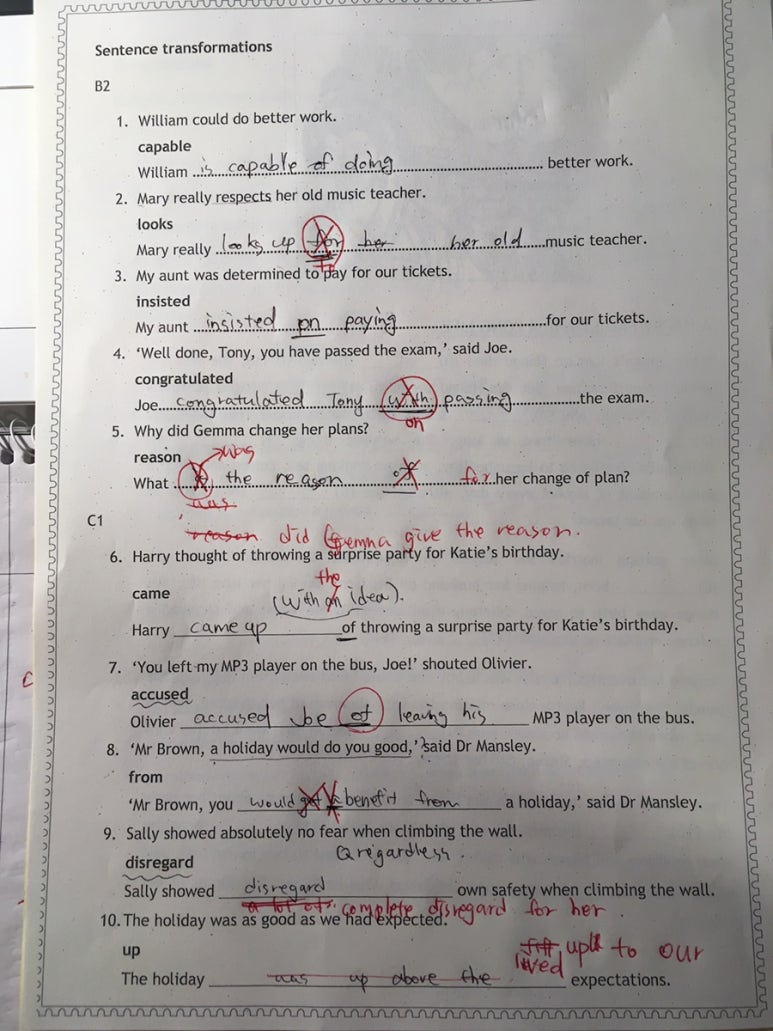 Sentence transformations
B2
1. William could do better work.
capable
William is capable of doing better work.
2. Mary really respects her old music teacher.
looks
Mary really looks up for her her old music teacher.
to
3. My aunt was determined to pay for our tickets.
insisted
My aunt insisted on paying for our tickets.
4. ‘Well done, Tony, you have passed the exam,’ said Joe.
congratulated
Joe congratulated Tony with passing the exam.
on
5. Why did Gemma change her plans?
reason was
What the reason of for her change of plan?
was
C1
reason did Gemma give the reason.
6. Harry thought of throwing a surprise party for Katie’s birthday.
the
came
(with an idea).
Harry came up of throwing a surprise party for Katie’s birthday.
7. ‘You left my MP3 player on the bus, Joe!’ shouted Olivier.
accused
Olivier accused Joe of leaving his MP3 player on the bus.
8. ‘Mr Brown, a holiday would do you good,’ said Dr Mansley.
from
‘Mr Brown, you would benefit from a holiday,’ said Dr Mansley.
9. Sally showed absolutely no fear when climbing the wall.
regardless.
disregard
Sally showed disregard own safety when climbing the wall.
a lot of complete disregard for her.
10. The holiday was as good as we had expected.
up
lived up to our
The holiday was up above the expectations.